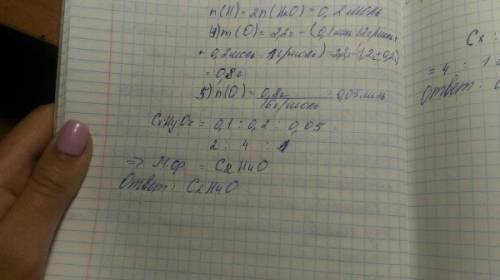 n(H) = 2n(H₂O) = 0,2 моль
4) m(O) = 2,2г - (0,1моль·12г/моль +
+ 0,2моль · 1г/моль) = 2,2г - (1,2 + 0,2)
= 0,8г
5) n(O) = 0,8г / 16г/моль = 0,05моль
CxHyOz = 0,1 : 0,2 : 0,05
2 : 4 : 1
=> МФ = C₂H₄O
Ответ: C₂H₄O
Cx :
= 4 : 1
Ответ: